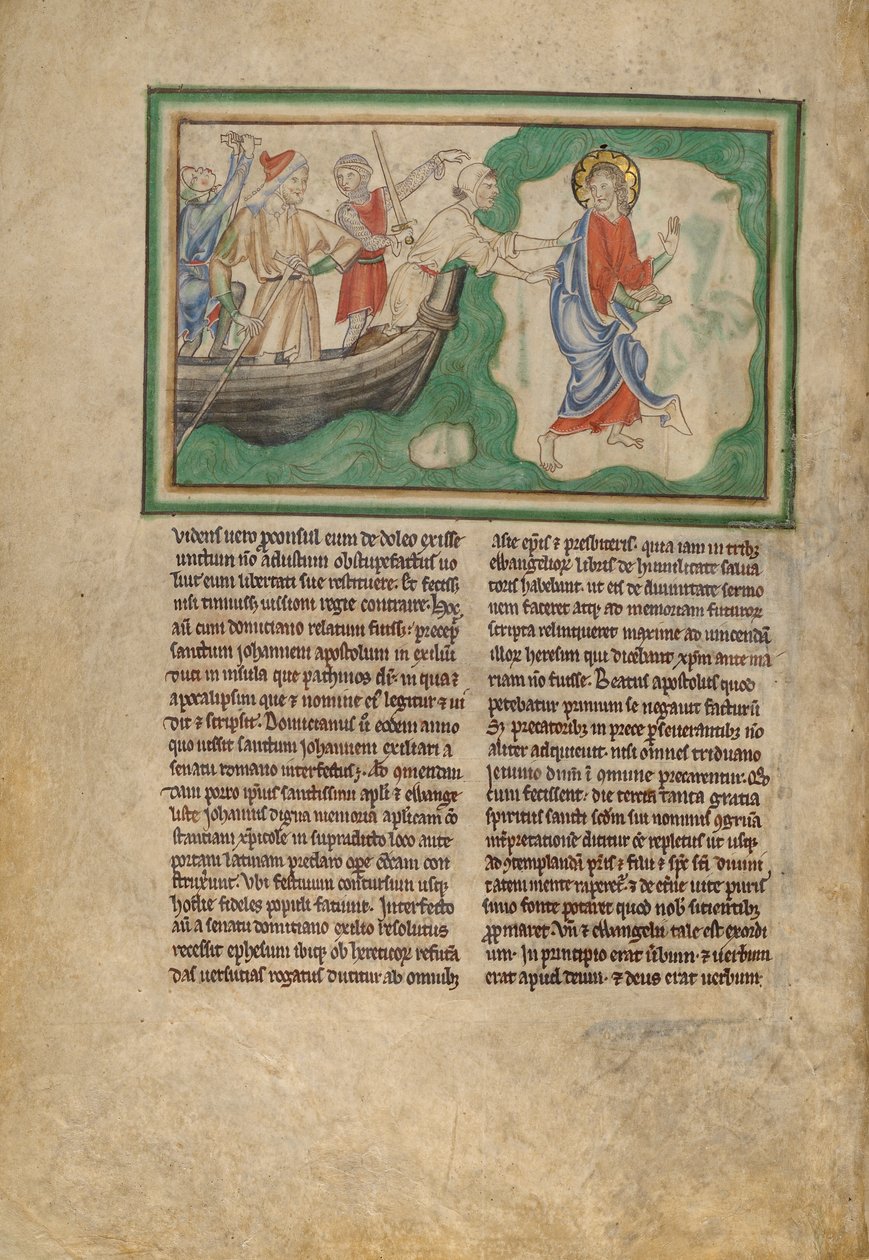 videns uero ꝓconsul eum de doleo exisse
unctum nō adustum obstupefactus uo
luit eum libertati sue restituere. Et feciss;
nisi timuiss; iussioni regie contraire. Hoc
aū cum domiciano relatum fuiss; precep̄
sanctum johannem apostolum in exiliū
duci in insula que pathmos dr̄. in qua ⁊
apocalipsim que ⁊ nomine eꝰ legitur ⁊ ui
dit ⁊ scripsit. Domicianus ū eodem anno
quo iussit sanctum johannem exiliari a
senatu romano interfectus ;. Ad ꝯmendan
dam porro ipsius sanctissimi apl̄i ⁊ ewange
liste johannis digna memoria apl̄icam cō
stantiam xp̄icole in supradicto loco ante
portam latinam preclaro oꝑe ecc̄am con
struxerunt. Vbi festiuum concursum usqꝫ
hodie fideles populi faciunt. Interfecto
aū a senatu domiciano exilio resolutus
recessit ephesum ibiqꝫ ob hereticoꝝ refuta
das uersutias rogatus dicitur ab omnibꝫ
asie ep̄is ⁊ presbiteris. quia iam in tribꝫ
ewangelioꝝ libris de humilitate salua
toris habebant. ut eis de diuinitate sermo
nem faceret atqꝫ ad memoriam futuroꝝ
scripta relinqueret maxime ad uincendā
illoꝝ heresim qui dicebant xp̄m ante ma
riam nō fuisse. Beatus apostolus quod
petebatur primum se negauit facturū
Sꝫ precatoribꝫ in prece ꝑseuerantibꝫ nō
aliter adquieuit. nisi om̄nes triduano
jeiunio dn̄m ī ꝯmune precarentur. Qd̄
cum fecissent. die tercia tanta gratia
spiritus sancti scd̄m sui nominis ꝯgruā
int̄pretationē dicitur ēē repletus ut usqꝫ
ad ꝯtemplandū pr̄is ⁊ filii ⁊ sp̄c sc̄i diuini
tatem mente raperet̄. ⁊ de et̄ne uite puris
simo fonte potaret quod nob̄ sitientibꝫ
ꝓpinaret. Vn̄ ⁊ ewangelii tale est exordi
um. In principio erat ūbum. ⁊ uerbum
erat apud deum. ⁊ deus erat uerbum.